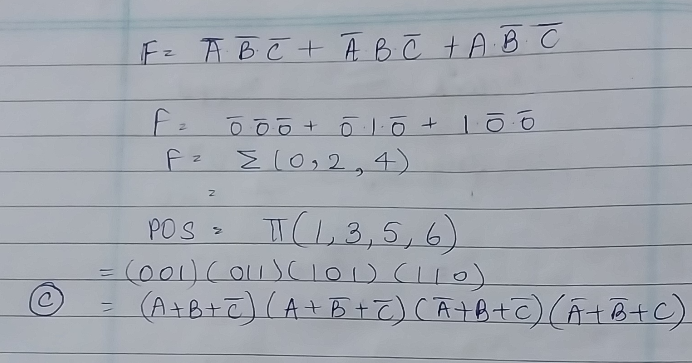 F = A̅ B̅ · C̅ + A̅ B · C̅ + A · B̅ · C̅
F = 0̅ 0̅ 0̅ + 0̅ · 1 · 0̅ + 1 · 0̅ · 0̅
F = Σ (0, 2, 4)
=
POS = π(1, 3, 5, 6)
= (001) (011) (101) (110)
Ⓒ = (A+B+C̅) (A+B̅+C̅) (A̅+B+C̅) (A̅+B̅+C)